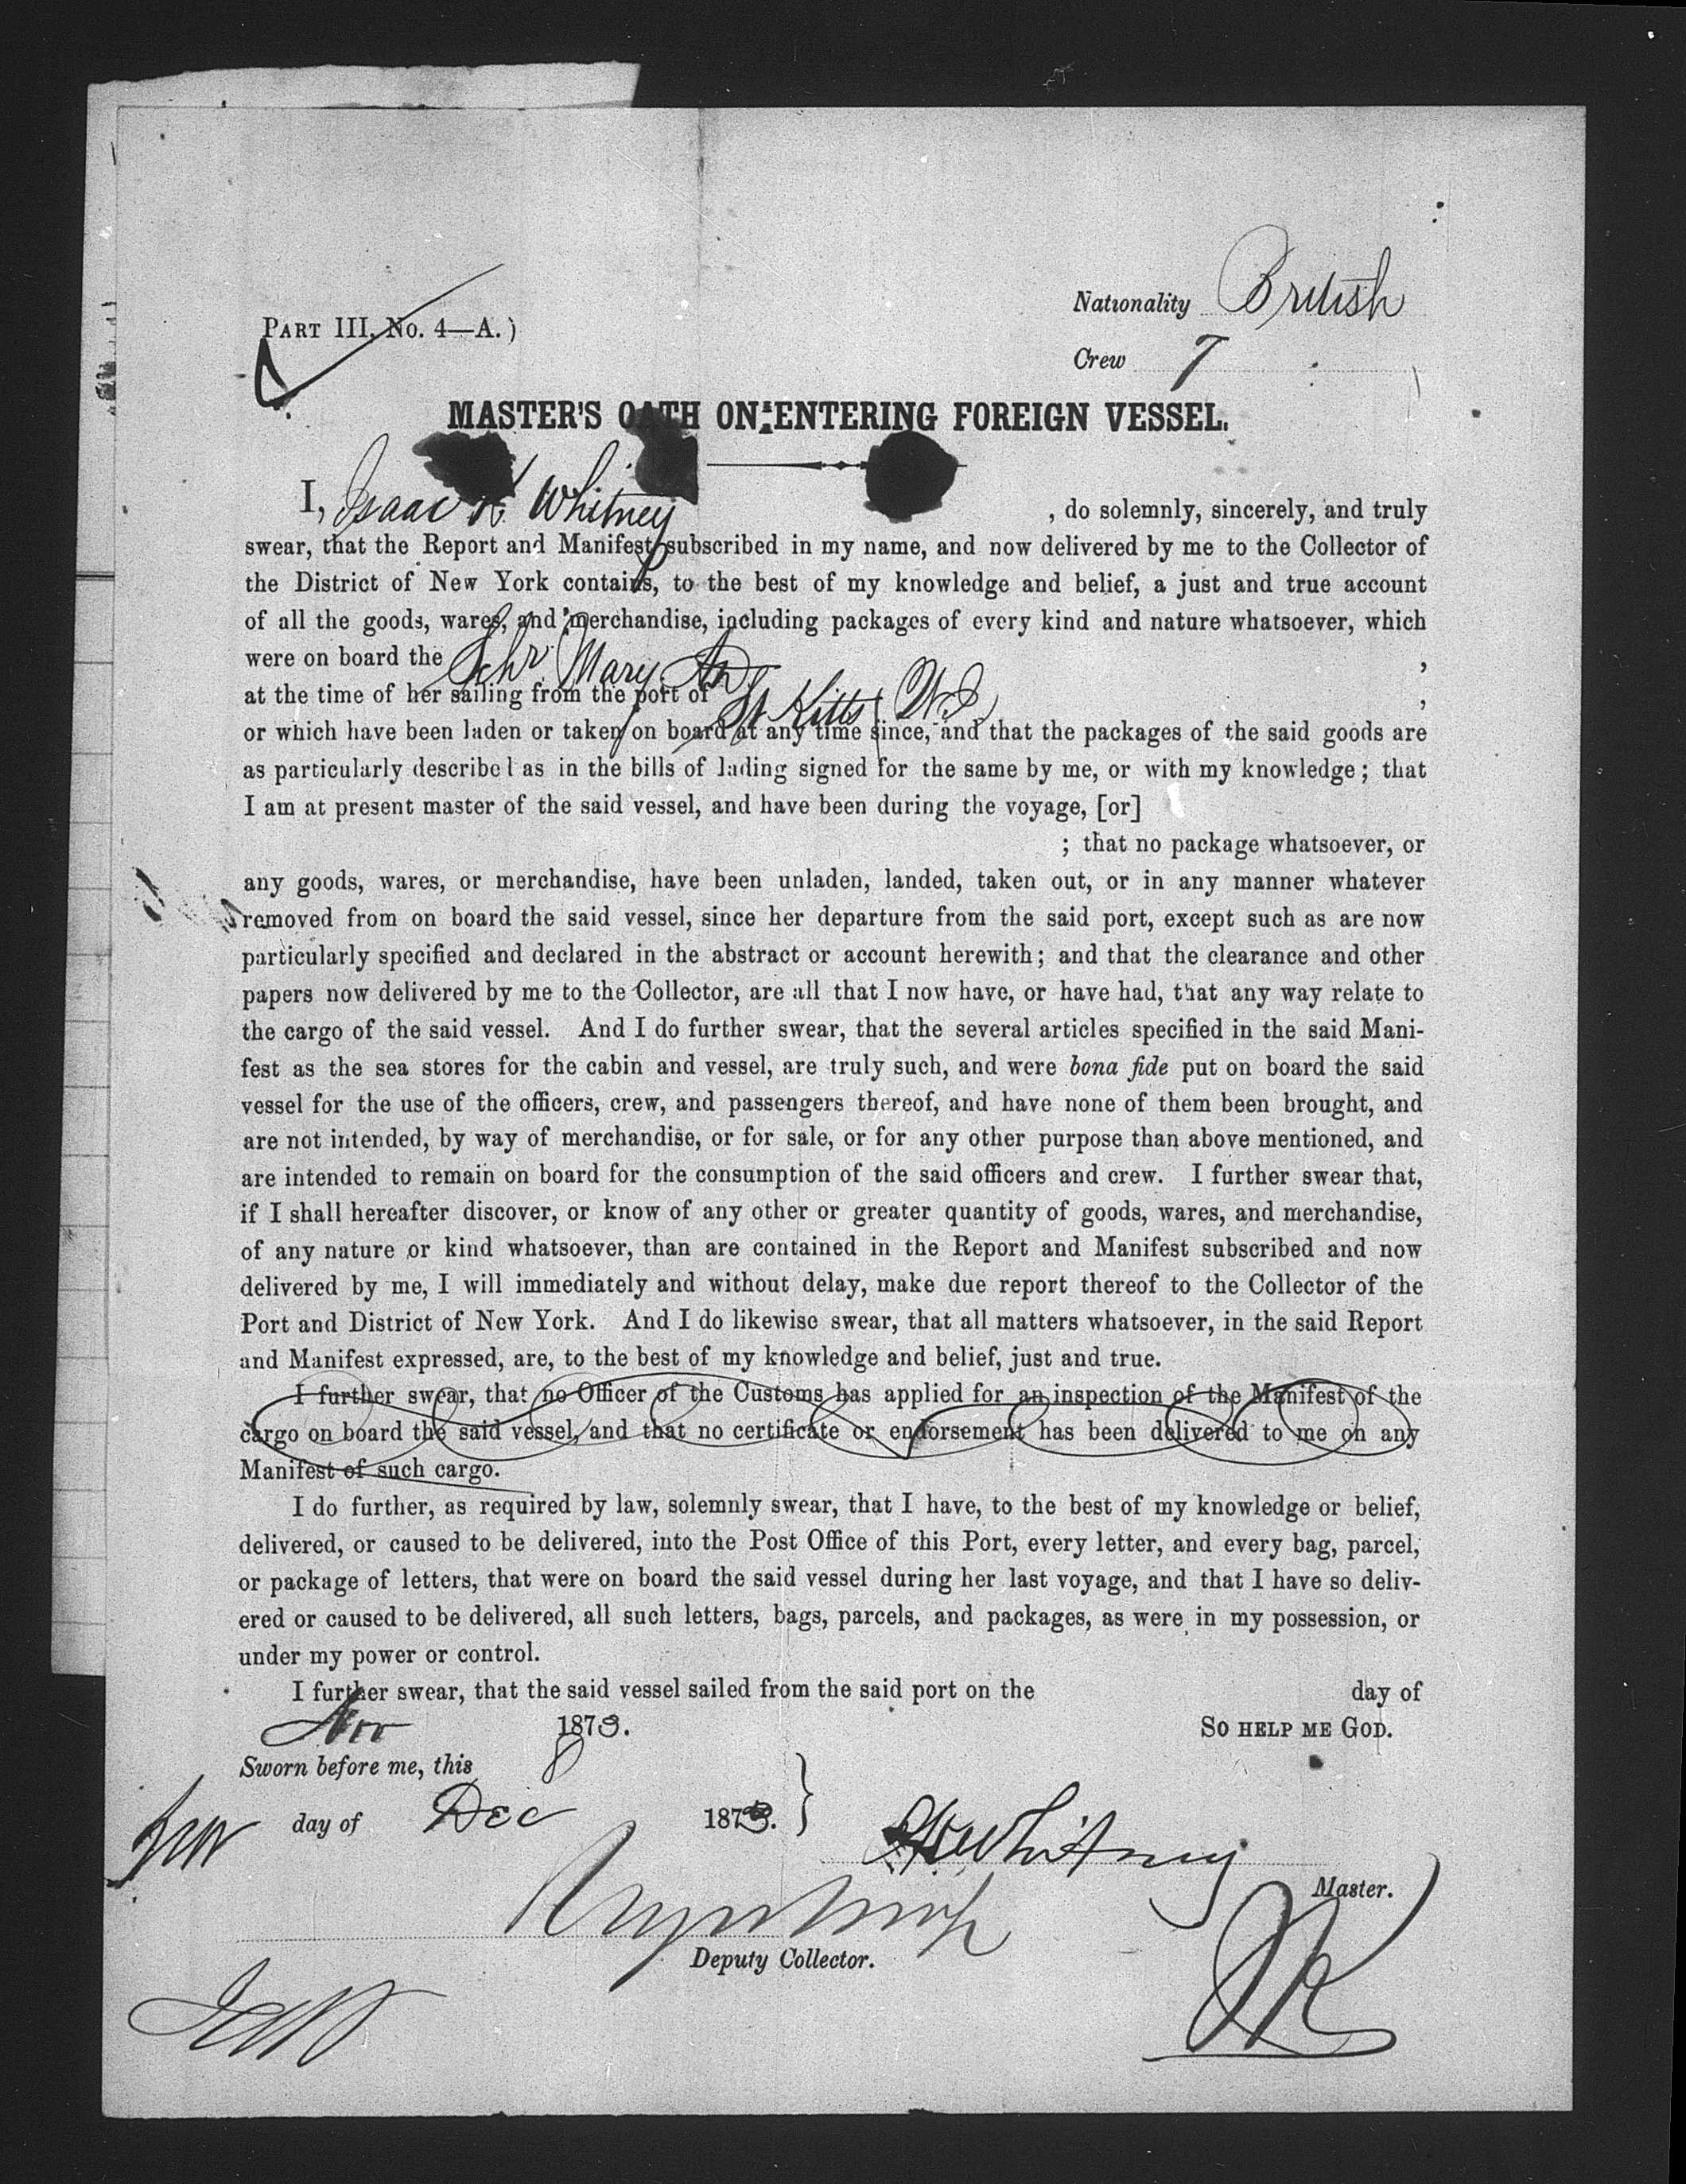 Nationality British
PART III. No. 4—A.)
Crew 7
MASTER'S OATH ON ENTERING FOREIGN VESSEL.
I, Isaac K Whitney , do solemnly, sincerely, and truly
swear, that the Report and Manifest subscribed in my name, and now delivered by me to the Collector of
the District of New York contains, to the best of my knowledge and belief, a just and true account
of all the goods, wares, and merchandise, including packages of every kind and nature whatsoever, which
were on board the Schr Mary An ,
at the time of her sailing from the port of St Kitts W.I ,
or which have been laden or taken on board at any time since, and that the packages of the said goods are
as particularly described as in the bills of lading signed for the same by me, or with my knowledge; that
I am at present master of the said vessel, and have been during the voyage, [or]
; that no package whatsoever, or
any goods, wares, or merchandise, have been unladen, landed, taken out, or in any manner whatever
removed from on board the said vessel, since her departure from the said port, except such as are now
particularly specified and declared in the abstract or account herewith; and that the clearance and other
papers now delivered by me to the Collector, are all that I now have, or have had, that any way relate to
the cargo of the said vessel. And I do further swear, that the several articles specified in the said Mani-
fest as the sea stores for the cabin and vessel, are truly such, and were bona fide put on board the said
vessel for the use of the officers, crew, and passengers thereof, and have none of them been brought, and
are not intended, by way of merchandise, or for sale, or for any other purpose than above mentioned, and
are intended to remain on board for the consumption of the said officers and crew. I further swear that,
if I shall hereafter discover, or know of any other or greater quantity of goods, wares, and merchandise,
of any nature or kind whatsoever, than are contained in the Report and Manifest subscribed and now
delivered by me, I will immediately and without delay, make due report thereof to the Collector of the
Port and District of New York. And I do likewise swear, that all matters whatsoever, in the said Report
and Manifest expressed, are, to the best of my knowledge and belief, just and true.
I further swear, that no Officer of the Customs has applied for an inspection of the Manifest of the
cargo on board the said vessel, and that no certificate or endorsement has been delivered to me on any
Manifest of such cargo.
I do further, as required by law, solemnly swear, that I have, to the best of my knowledge or belief,
delivered, or caused to be delivered, into the Post Office of this Port, every letter, and every bag, parcel,
or package of letters, that were on board the said vessel during her last voyage, and that I have so deliv-
ered or caused to be delivered, all such letters, bags, parcels, and packages, as were in my possession, or
under my power or control.
I further swear, that the said vessel sailed from the said port on the day of
Nov 1873. SO HELP ME GOD.
Sworn before me, this 8
day of Dec 1873.
Whitney
Master.
Deputy Collector.